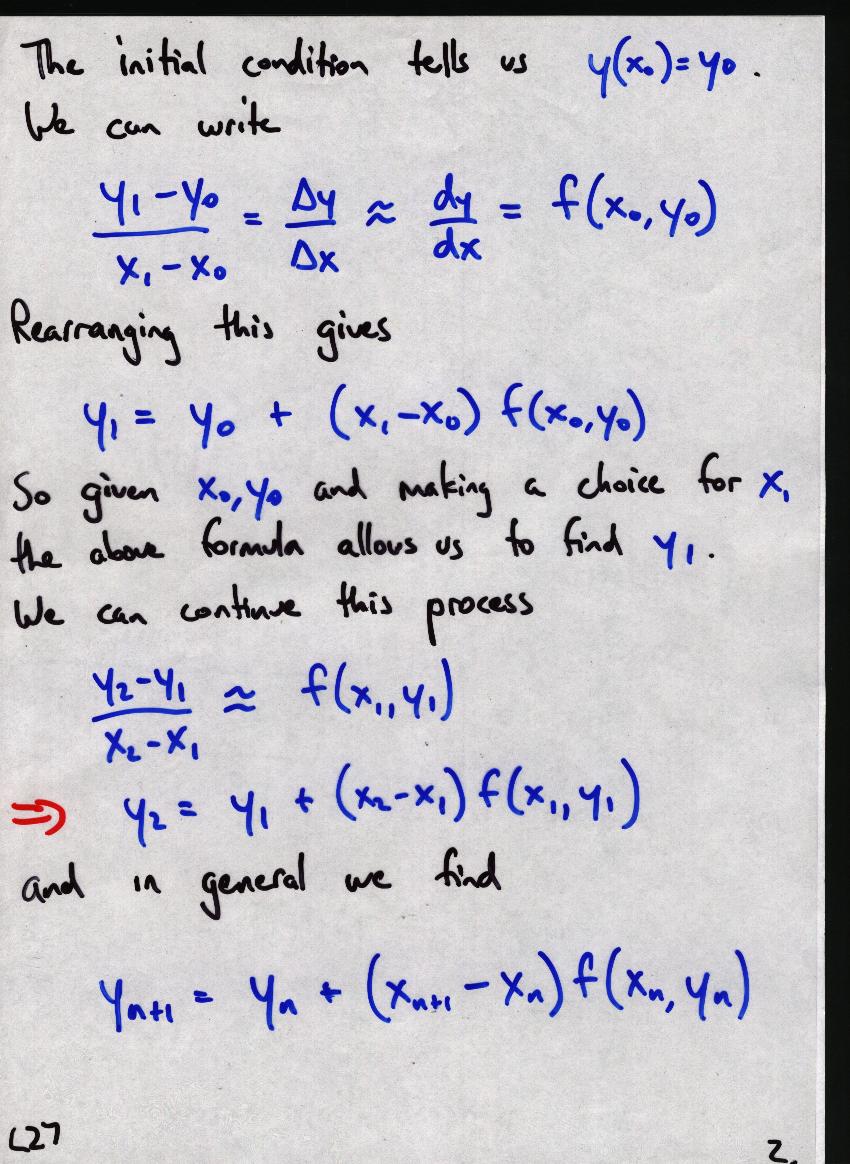 The initial condition tells us y(x₀)=y₀.
We can write
(y₁-y₀)/(x₁-x₀) = Δy/Δx ≈ dy/dx = f(x₀,y₀)
Rearranging this gives
y₁ = y₀ + (x₁-x₀) f(x₀,y₀)
So given x₀,y₀ and making a choice for x₁
the above formula allows us to find y₁.
We can continue this process
(y₂-y₁)/(x₂-x₁) ≈ f(x₁,y₁)
⇒ y₂ = y₁ + (x₂-x₁) f(x₁,y₁)
and in general we find
yₙ₊₁ = yₙ + (xₙ₊₁-xₙ) f(xₙ,yₙ)
L27 2.